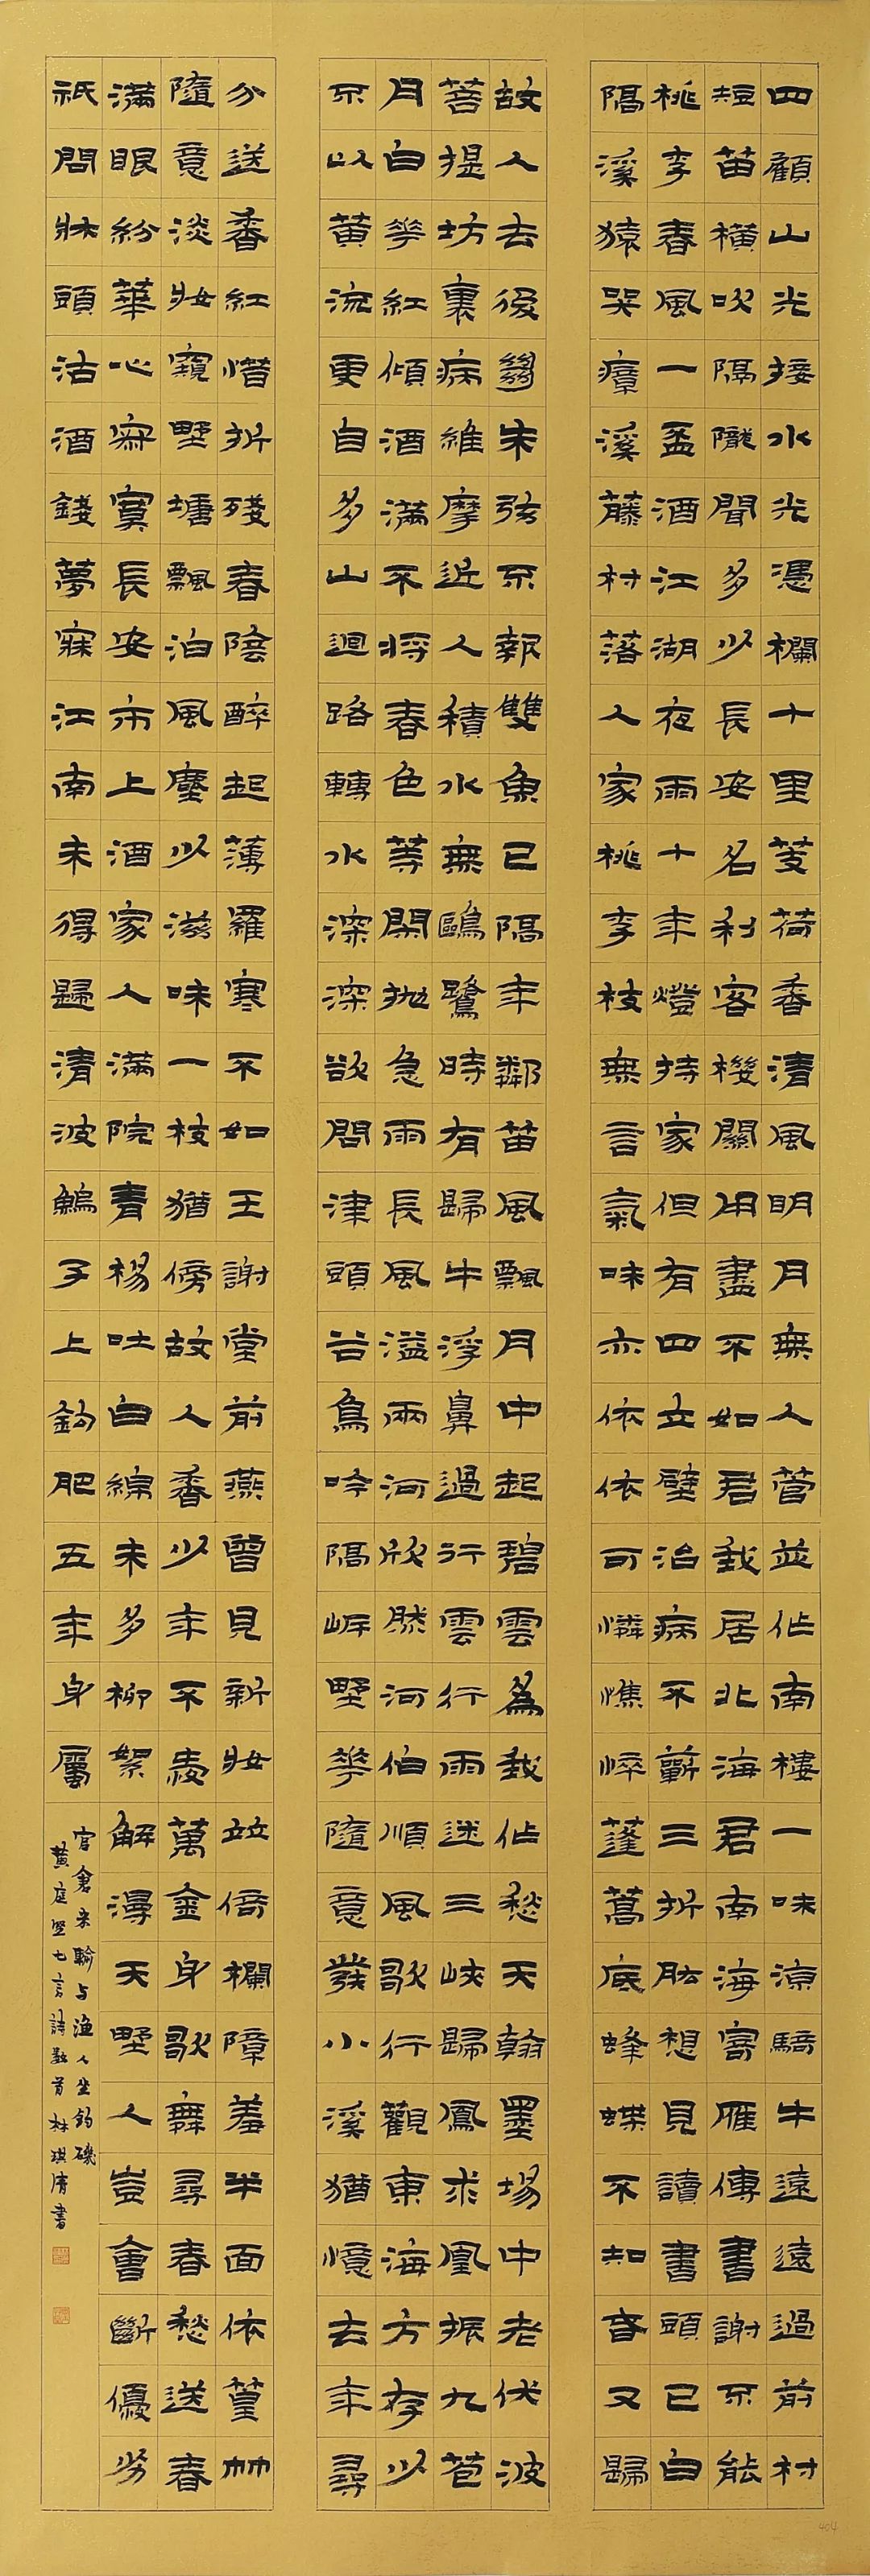 四顧山光接水光憑欄十里芰荷香清風明月無人管並作南樓一味涼騎牛遠遠過前村
短笛橫吹隔隴聞多少長安名利客機關用盡不如君我居北海君南海寄雁傳書謝不能
桃李春風一盃酒江湖夜雨十年燈持家但有四立壁治病不蘄三折肱想見讀書頭已白
隔溪猿哭瘴溪藤村落人家桃李枝無言氣味亦依依可憐憔悴蓬蒿底蜂蝶不知春又歸
故人去後絕朱弦不報雙魚已隔年鄰笛風飄月中起碧雲為我作愁天翰墨場中老伏波
菩提坊裏病維摩近人積水無鷗鷺時有歸牛浮鼻過行雲行雨迷三峽歸鳳求凰振九苞
月白花紅傾酒滿不將春色等閑拋急雨長風溢兩河欣然河伯順風歌行觀東海方存少
不以黃流更自多山迴路轉水深深欲問津頭谷鳥吟隔岸野花隨意發小溪猶憶去年尋
分送香紅惜折殘春陰醉起薄羅寒不如王謝堂前燕曾見新妝竝倚欄障羞半面依篁竹
隨意淡妝窺野塘飄泊風塵少滋味一枝猶傍故人香少年不愛萬金身歌舞尋春愁送春
滿眼紛華心寂寞長安市上酒家人滿院青楊吐白綿未多柳絮解漫天野人豈會斷優劣
祇問牀頭沽酒錢夢寐江南未得歸清波子上鉤肥五年身屬
官倉米輸与漁人坐釣磯
黃庭堅七言詩數首林琪清書